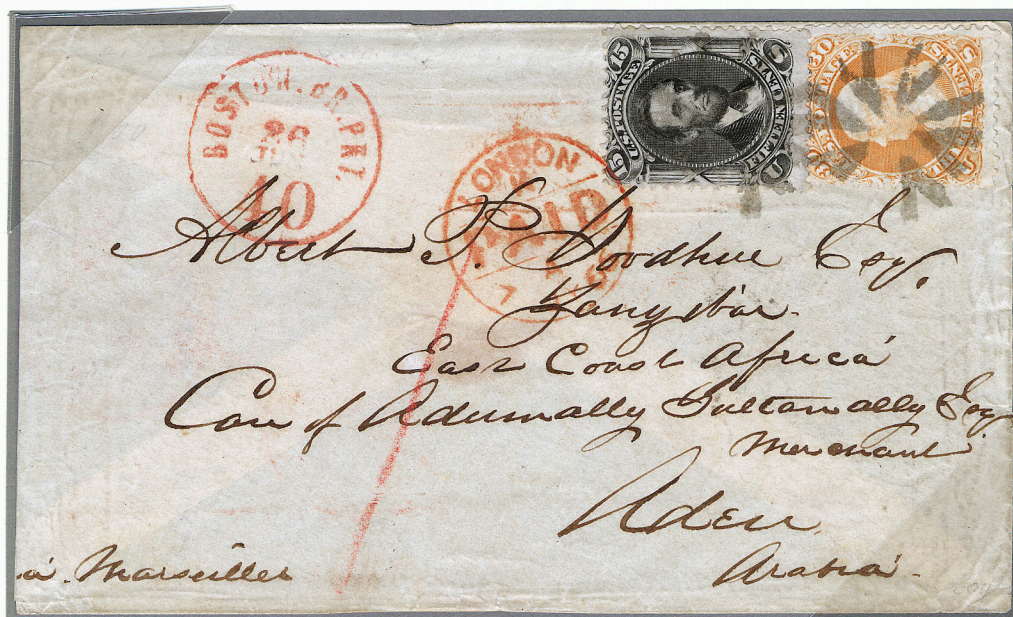 BOSTON. BR. PKT.
40
LONDON
PAID
7
15 U.S. POSTAGE 15
FIFTEEN CENTS
U S
30
U S
Albert P. Goodhue Esq.
Zanzibar
East Coast Africa
Care of Adumally Sultanally Esq
Merchant
Aden
Arabia
via Marseilles